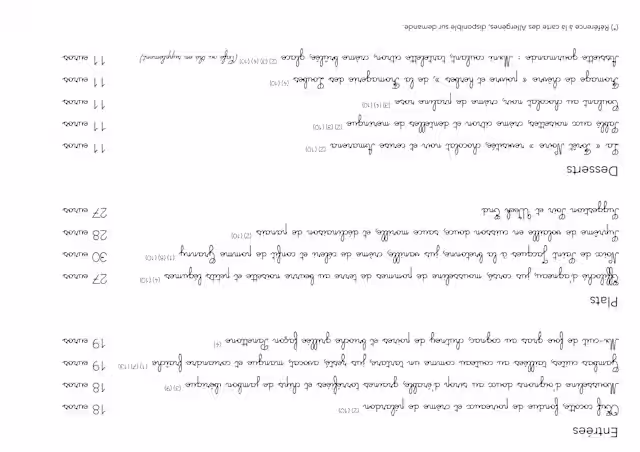 Entrées
Œuf cocotte, fondue de poireaux et crème de pélardon (2) (10) 18 euros
Mousseline d'oignons doux au sirop d'érable, graines torréfiées et chips de jambon ibérique (3) (9) 18 euros
Gambas cuites, taillées au couteau comme un tartare, jus réduit, avocat, mangue et coriandre fraîche (1) (7) (13) 19 euros
Mi-cuit de foie gras au cognac, chutney de poires et brioche grillée façon Panettone (4) 19 euros
Plats
Effiloché d'agneau, jus corsé, mousseline de pommes de terre au beurre noisette et petits légumes (4) (10) 27 euros
Noix de Saint Jacques à la bretonne, jus vanille, crème de céleri et confit de pomme Granny (1) (6) (10) 30 euros
Suprême de volaille en cuisson douce, sauce morille, et déclinaison de panais (2) (10) 28 euros
Suggestion Soir et Week End 27 euros
Desserts
La « Forêt Noire » revisitée, chocolat noir et cerise Amarena (2) (10) 11 euros
Sablé aux noisettes, crème citron et dentelles de meringue (2) (3) (10) 11 euros
Coulant au chocolat noir, crème de praline rose (3) (4) (10) 11 euros
Fromage de chèvre « poivre et herbes », de la Fromagerie des (4) (10) 11 euros
Assiette gourmande : Mini coulant, tartelette citron, crème brûlée, glace (2) (3) (4) (10) (Café ou thé en supplément) 11 euros
(*) Référence à la carte des Allergènes, disponible sur demande.